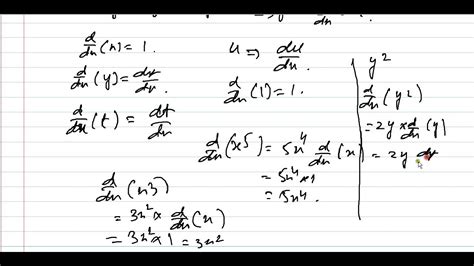 d/dx (x) = 1.
d/dx (y) = dy/dx.
d/dx (t) = dt/dx
u ⇒ du/dx.
d/dx (1) = 1.
d/dx (x5) = 5x⁴ d/dx (x)
= 5x⁴×1
= 5x⁴.
d/dx (x3)
= 3x² × d/dx (x)
= 3x² × 1 = 3x²
y²
d/dx (y²)
= 2y × d/dx (y)
= 2y dy